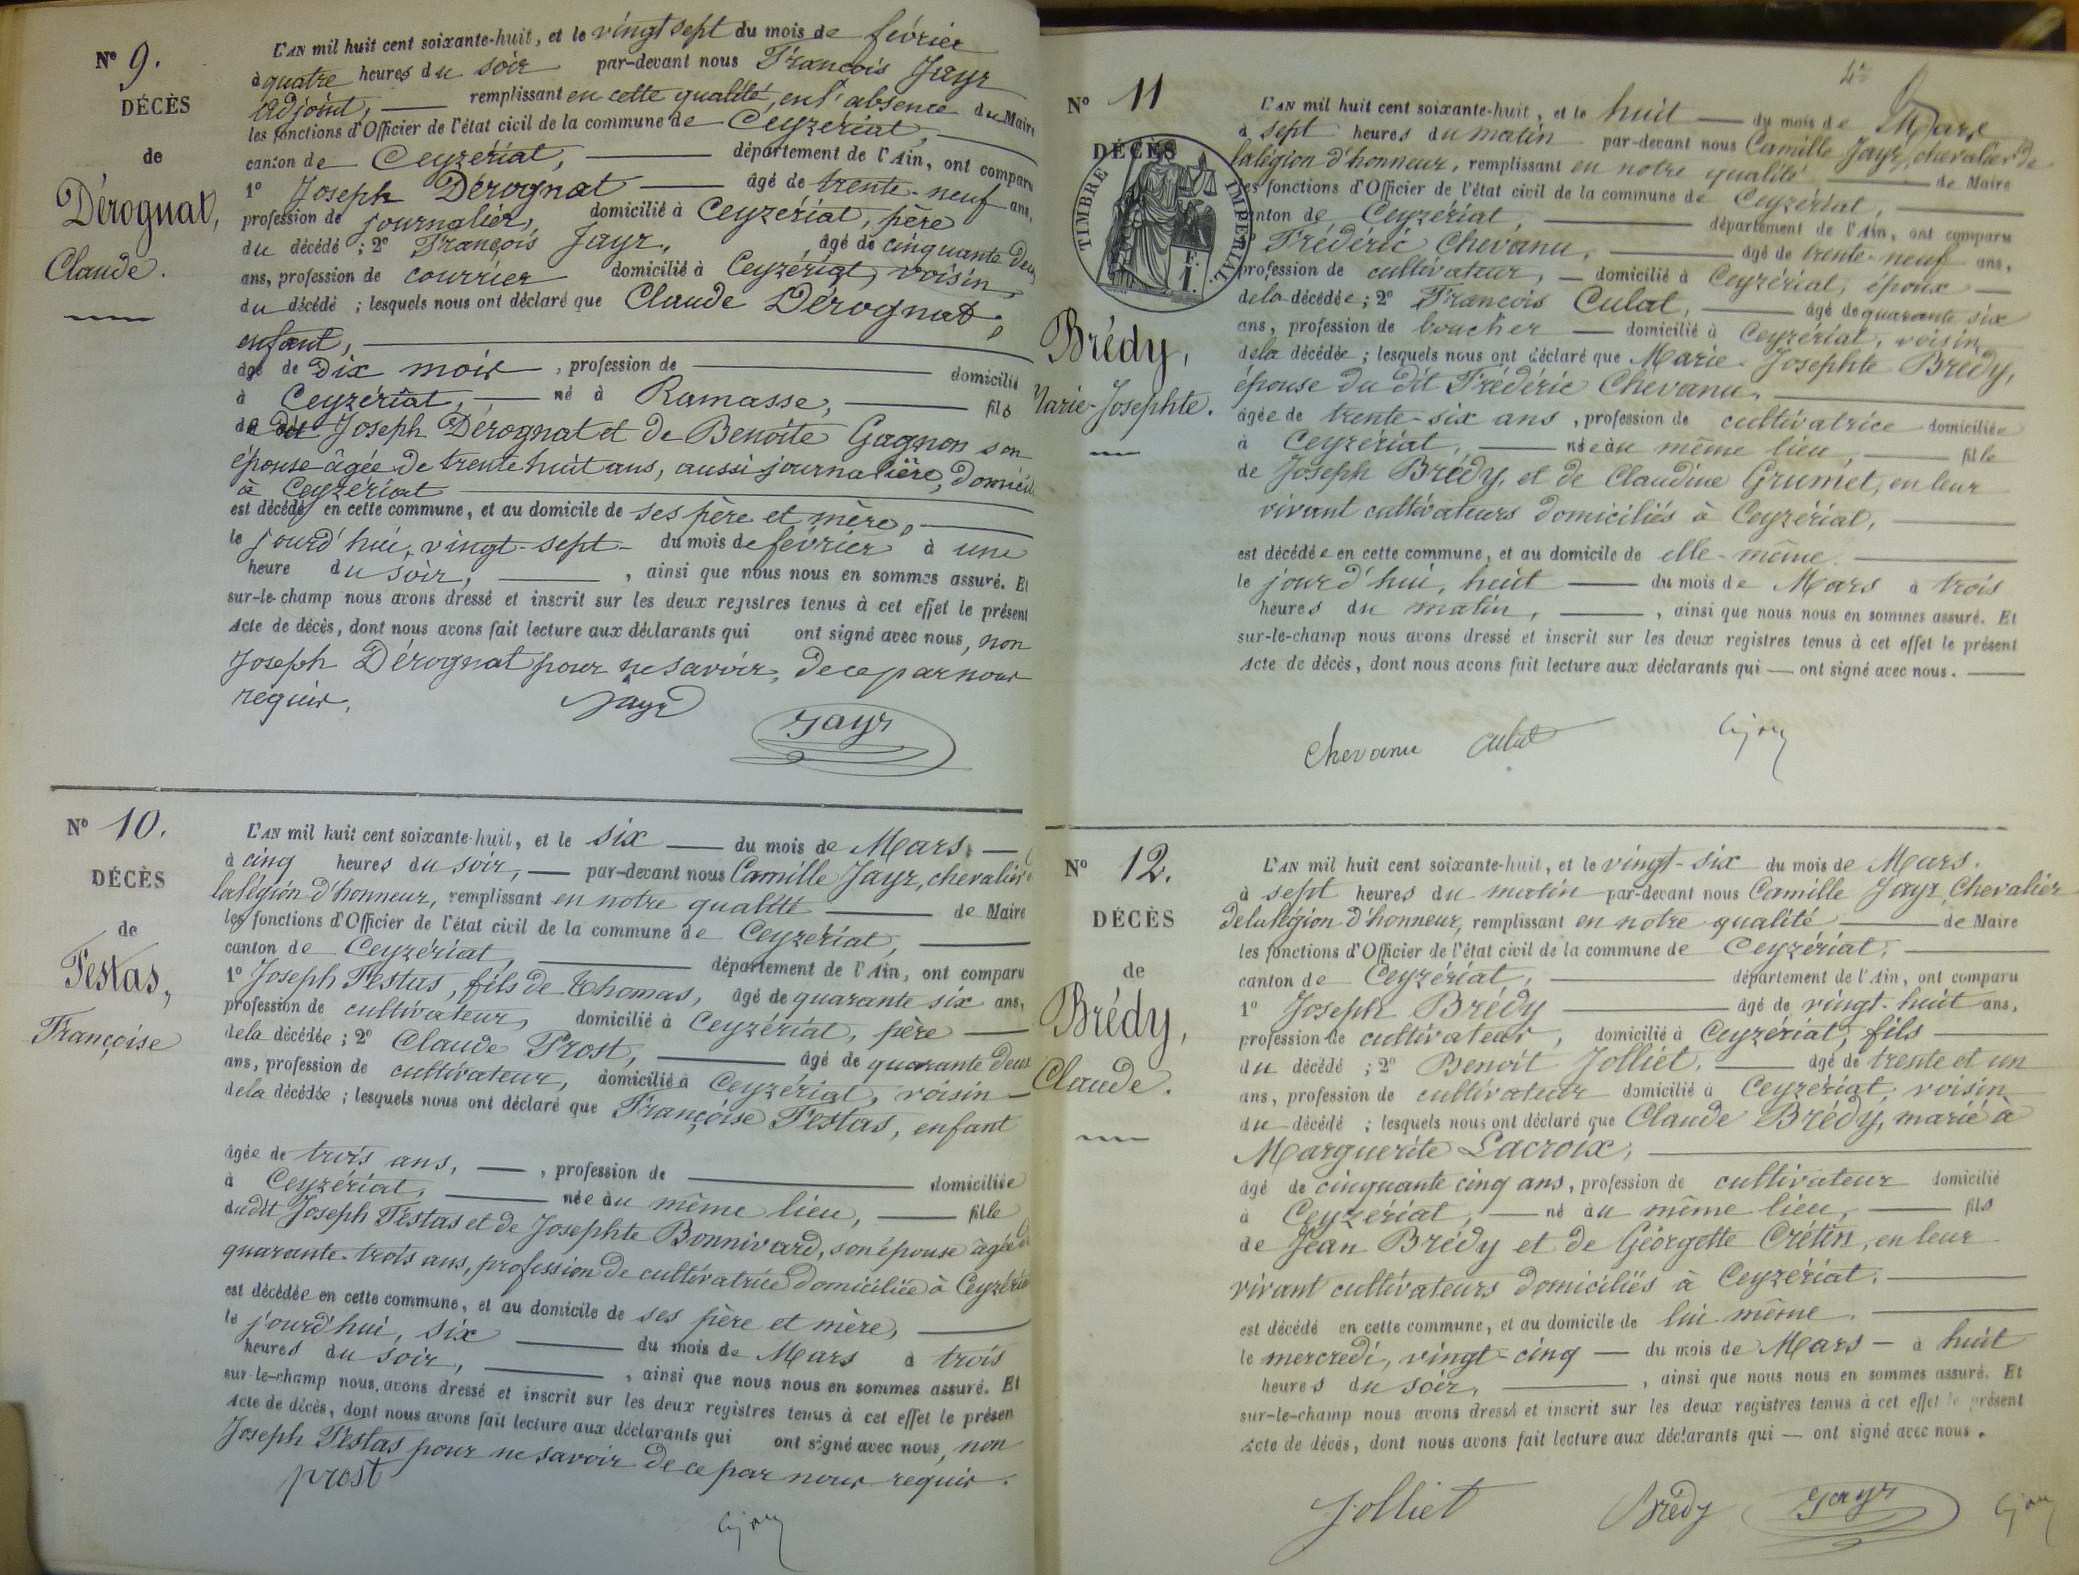 N° 9.
DÉCÈS
de
Dérognat,
Claude.
L'AN mil huit cent soixante-huit, et le vingt sept du mois de février
à quatre heures du soir par-devant nous François Jayr
adjoint, remplissant en cette qualité, en l'absence du Maire
les fonctions d'Officier de l'état civil de la commune de Ceyzériat,
canton de Ceyzériat, département de l'Ain, ont comparu
1° Joseph Dérognat âgé de trente-neuf ans,
profession de journalier, domicilié à Ceyzériat, père
du décédé ; 2° François Jayr, âgé de cinquante deux
ans, profession de courrier domicilié à Ceyzériat, voisin
du décédé ; lesquels nous ont déclaré que Claude Dérognat,
enfant,
âgé de dix mois, profession de domicilié
à Ceyzériat, né à Ramasse, fils
de Joseph Dérognat et de Benoite Gagnon son
épouse âgée de trente huit ans, aussi journalière, domicil
à Ceyzériat
est décédé en cette commune, et au domicile de ses père et mère,
le jourd'hui, vingt-sept du mois de février à une
heure du soir, , ainsi que nous nous en sommes assuré. Et
sur-le-champ nous avons dressé et inscrit sur les deux registres tenus à cet effet le présent
Acte de décès, dont nous avons fait lecture aux déclarants qui ont signé avec nous, non
Joseph Dérognat pour ne savoir, de ce par nous
requis.
Jayr
Jayr
N° 10.
DÉCÈS
de
Festas,
Françoise
L'AN mil huit cent soixante-huit, et le six du mois de Mars,
à cinq heures du soir, par-devant nous Camille Jayr, chevalier
la légion d'honneur, remplissant en notre qualité de Maire
les fonctions d'Officier de l'état civil de la commune de Ceyzériat,
canton de Ceyzériat, département de l'Ain, ont comparu
1° Joseph Festas, fils de Thomas, âgé de quarante six ans,
profession de cultivateur, domicilié à Ceyzériat, père
de la décédée ; 2° Claude Prost, âgé de quarante deux
ans, profession de cultivateur, domicilié à Ceyzériat, voisin
de la décédée ; lesquels nous ont déclaré que Françoise Festas, enfant
âgée de trois ans, , profession de domiciliée
à Ceyzériat, née au même lieu, fille
dudit Joseph Festas et de Josephte Bonnivard, son épouse âgée de
quarante-trois ans, profession de cultivatrice domiciliée à Ceyzériat
est décédée en cette commune, et au domicile de ses père et mère,
le jourd'hui, six du mois de Mars à trois
heures du soir, , ainsi que nous nous en sommes assuré. Et
sur-le-champ nous avons dressé et inscrit sur les deux registres tenus à cet effet le présen
Acte de décès, dont nous avons fait lecture aux déclarants qui ont signé avec nous, non
Joseph Festas pour ne savoir de ce par nous requis.
prost
N° 11
DÉCÈS
TIMBRE IMPÉRIAL
1 F.
Brédy,
Marie-Josephte.
L'AN mil huit cent soixante-huit, et le huit du mois de Mars
à sept heures du matin par-devant nous Camille Jayr, chevalier de
la légion d'honneur, remplissant en notre qualité de Maire
les fonctions d'Officier de l'état civil de la commune de Ceyzériat,
canton de Ceyzériat, département de l'Ain, ont comparu
Frédéric Chevanu, âgé de trente-neuf ans,
profession de cultivateur, domicilié à Ceyzériat, époux
de la décédée ; 2° François Culat, âgé de quarante six
ans, profession de boucher domicilié à Ceyzériat, voisin
de la décédée ; lesquels nous ont déclaré que Marie-Josephte Brédy,
épouse du dit Frédéric Chevanu,
âgée de trente-six ans, profession de cultivatrice domiciliée
à Ceyzériat, née au même lieu, fille
de Joseph Brédy, et de Claudine Grumet, en leur
vivant cultivateurs domiciliés à Ceyzériat,
est décédée en cette commune, et au domicile de elle-même.
le jourd'hui, huit du mois de Mars à trois
heures du matin, , ainsi que nous nous en sommes assuré. Et
sur-le-champ nous avons dressé et inscrit sur les deux registres tenus à cet effet le présent
Acte de décès, dont nous avons fait lecture aux déclarants qui — ont signé avec nous.
Chevanu Culat
N° 12.
DÉCÈS
de
Brédy,
Claude.
L'AN mil huit cent soixante-huit, et le vingt-six du mois de Mars.
à sept heures du matin par-devant nous Camille Jayr, Chevalier
de la légion d'honneur, remplissant en notre qualité de Maire
les fonctions d'Officier de l'état civil de la commune de Ceyzériat,
canton de Ceyzériat, département de l'Ain, ont comparu
1° Joseph Brédy âgé de vingt-huit ans,
profession de cultivateur, domicilié à Ceyzériat, fils
du décédé ; 2° Benoit Jolliet, âgé de trente et un
ans, profession de cultivateur domicilié à Ceyzériat, voisin
du décédé ; lesquels nous ont déclaré que Claude Brédy, marié à
Marguerite Lacroix,
âgé de cinquante cinq ans, profession de cultivateur domicilié
à Ceyzériat, né au même lieu, fils
de Jean Brédy et de Géorgette Crétin, en leur
vivant cultivateurs domiciliés à Ceyzériat.
est décédé en cette commune, et au domicile de lui même.
le mercredi, vingt-cinq — du mois de Mars — à huit
heures du soir, , ainsi que nous nous en sommes assuré. Et
sur-le-champ nous avons dressé et inscrit sur les deux registres tenus à cet effet le présent
Acte de décès, dont nous avons fait lecture aux déclarants qui — ont signé avec nous.
Jolliet Brédy Jayr